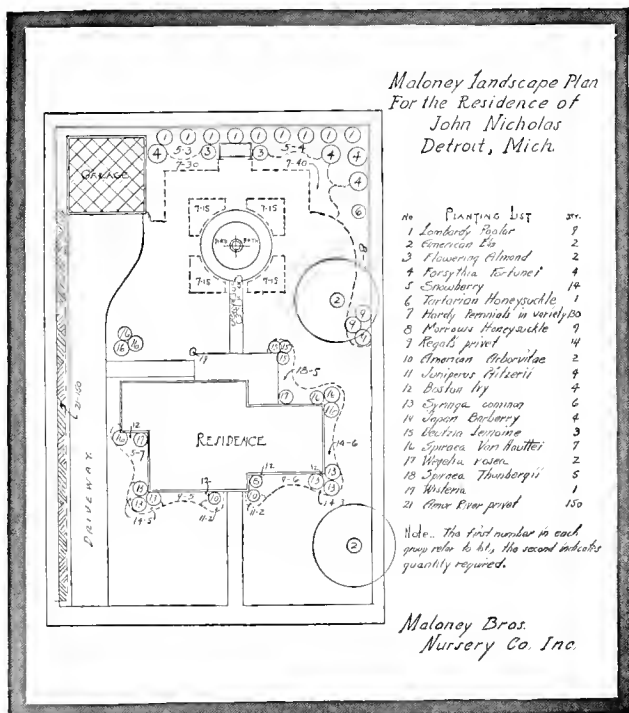 Maloney Landscape Plan
For the Residence of
John Nicholas
Detroit, Mich.
No PLANTING LIST QTY.
1 Lombardy Poplar 9
2 American Elm 2
3 Flowering Almond 2
4 Forsythia Fortunei 4
5 Snowberry 14
6 Tartarian Honeysuckle 1
7 Hardy Perennials in variety 130
8 Morrows Honeysuckle 9
9 Regals privet 14
10 American Arborvitae 2
11 Juniperus Pfitzerii 4
12 Boston Ivy 4
13 Syringa common 6
14 Japan Barberry 4
15 Deutzia Lemoine 3
16 Spiraea Van Houttei 7
17 Weigelia rosea 2
18 Spiraea Thunbergii 5
19 Wisteria 1
21 Amur River privet 150
Note.. The first number in each
group refer to list, the second indicates
quantity required.
Maloney Bros.
Nursery Co. Inc.
1 1 1 1 1 1 1 1 1
4 5-3 3 3 5-4 4
7-30 7-40
4
4
GARAGE
6
7-15 7-15
BIRD BATH
8
7-15 7-15
2
9
9 9
16
16 16
19
15 15
15
18-5
17 16 16
16
21-150
DRIVEWAY
RESIDENCE
16 12 17
5-7
14-6
12 12 12
13
13 11 9-5 10 9-6 13 13
13 11-2 11-2
14-5 14-3
2